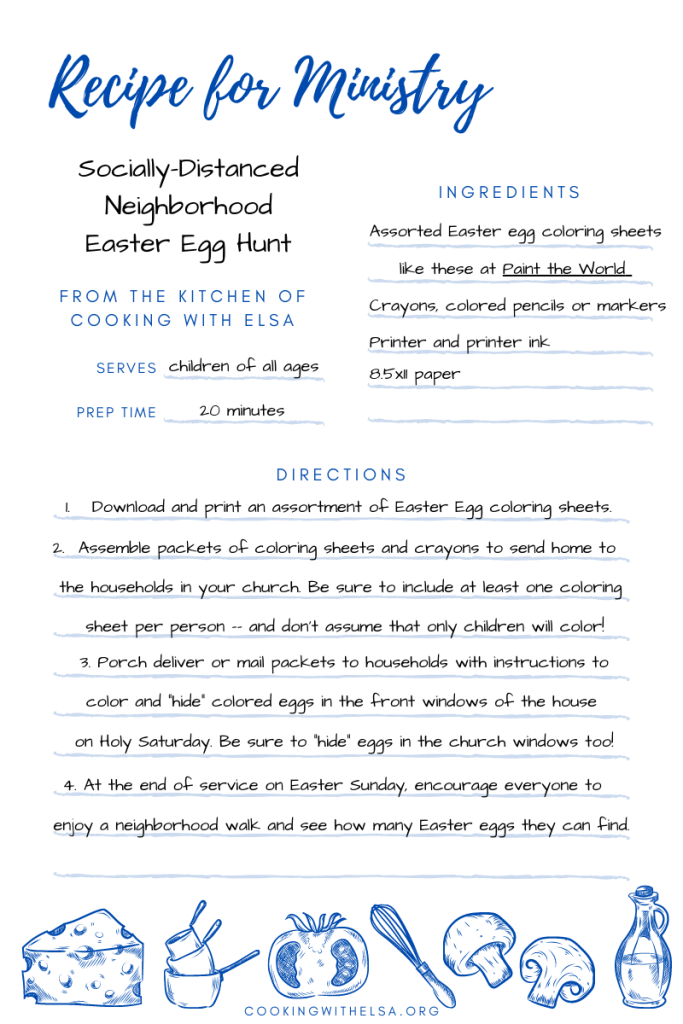 Recipe for Ministry
Socially-Distanced
Neighborhood
Easter Egg Hunt
FROM THE KITCHEN OF
COOKING WITH ELSA
SERVES children of all ages
PREP TIME 20 minutes
INGREDIENTS
Assorted Easter egg coloring sheets
like these at Paint the World
Crayons, colored pencils or markers
Printer and printer ink
8.5x11 paper
DIRECTIONS
1. Download and print an assortment of Easter Egg coloring sheets.
2. Assemble packets of coloring sheets and crayons to send home to
the households in your church. Be sure to include at least one coloring
sheet per person -- and don't assume that only children will color!
3. Porch deliver or mail packets to households with instructions to
color and "hide" colored eggs in the front windows of the house
on Holy Saturday. Be sure to "hide" eggs in the church windows too!
4. At the end of service on Easter Sunday, encourage everyone to
enjoy a neighborhood walk and see how many Easter eggs they can find.
COOKINGWITHELSA.ORG